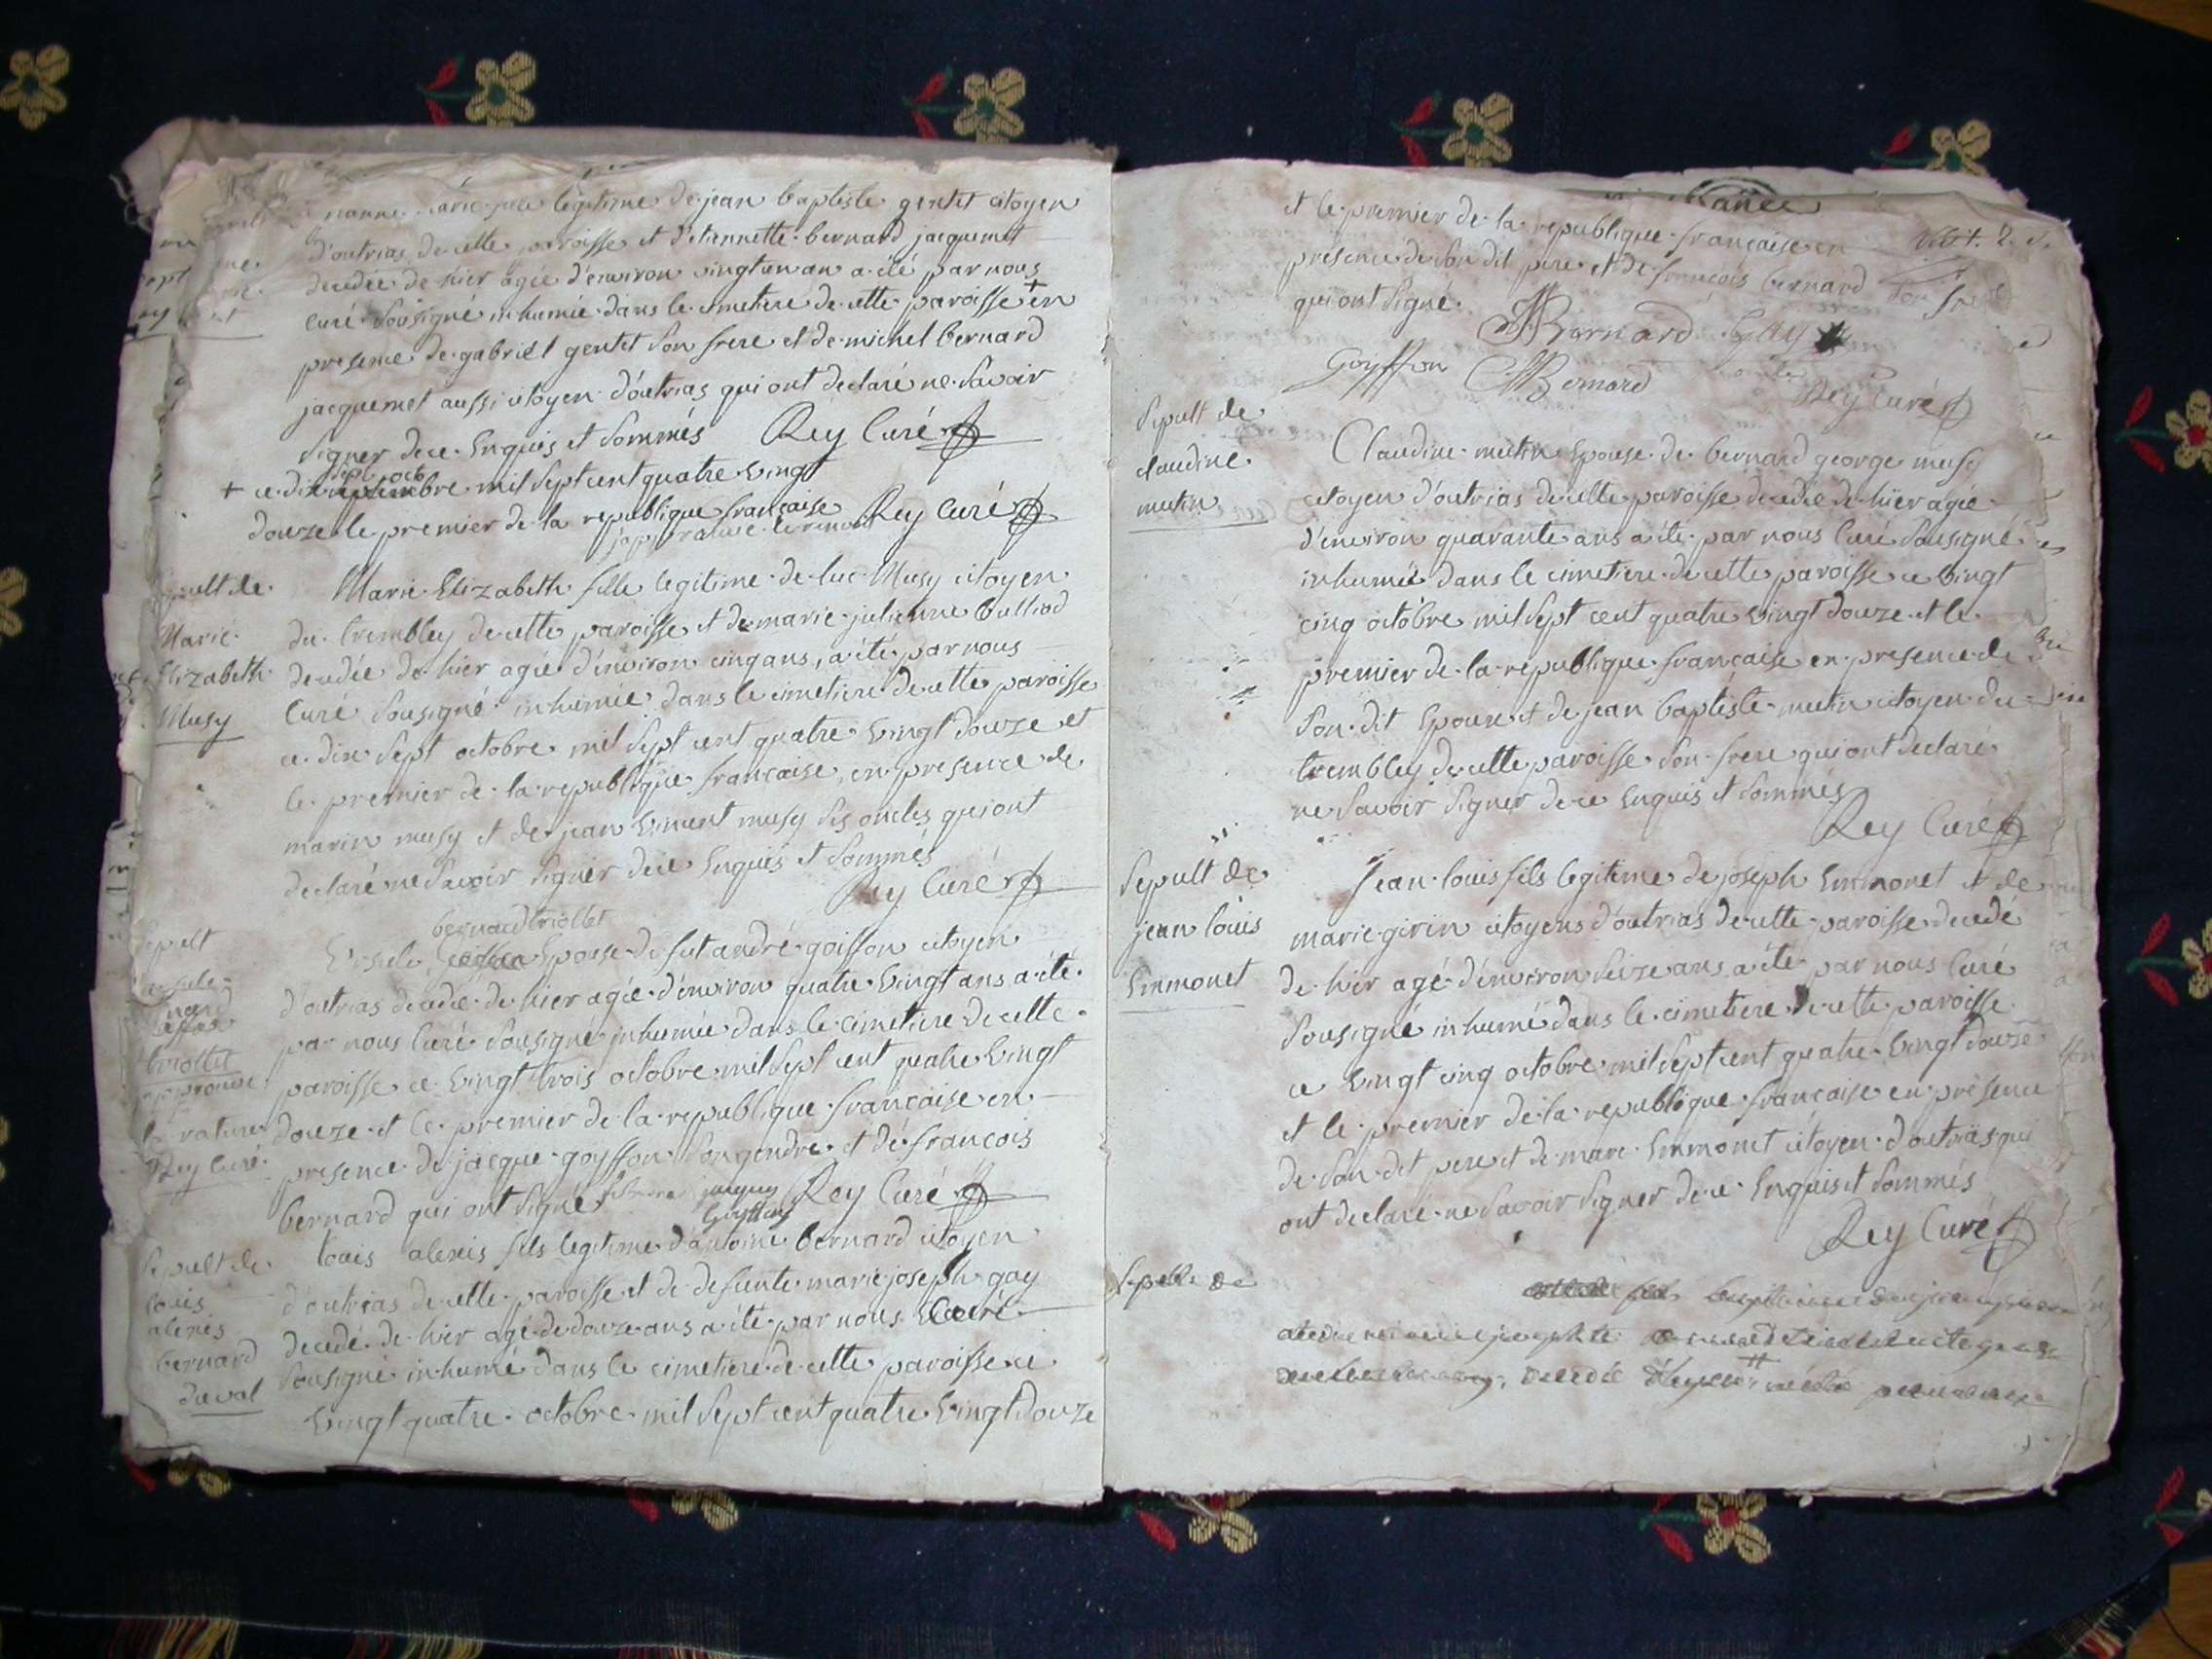 legitime de jean baptiste gentet citoyen
d'outrias de cette paroisse et d'etiennette bernard jacquemet
decedée de hier agée d'environ vingt un an a été par nous
curé sousigné inhumée dans le cimetiere de cette paroisse + en
presence de gabriel gentet son frere et de michel bernard
jacquemet aussi citoyen d'outrias qui ont declaré ne savoir
signer de ce Enquis et sommés Rey Curé
+ ce dix sept octobre mil sept cent quatre vingt
douze le premier de la republique française Rey Curé
Sepult de
Marie
Elizabeth
Musy
Marie Elizabeth fille legitime de luc Musy citoyen
du trembley de cette paroisse et de marie julienne bulliod
decedée de hier agée d'environ cinq ans, a été par nous
Curé sousigné inhumée dans le cimetiere de cette paroisse
ce dix sept octobre mil sept cent quatre vingt douze et
le premier de la republique française, en presence de
marin musy et de jean vincent musy ses oncles qui ont
declaré ne savoir signer de ce Enquis et sommés
Rey Curé
Sepult
triollet
approuve
rature
Rey Curé
bernard triollet
Epouse de fut andré goiffon citoyen
d'outrias decedée de hier agée d'environ quatre vingt ans a été
par nous Curé sousigné inhumée dans le cimetiere de cette
paroisse ce vingt trois octobre mil sept cent quatre vingt
douze et le premier de la republique française en
presence de jacque goyffon son gendre et de françois
bernard qui ont signé Rey Curé
Sepult de
louis
alexis
bernard
duval
louis alexis fils legitime d'antoine bernard citoyen
d'outrias de cette paroisse et de defunte marie joseph gay
decedé de hier agé de douze ans a été par nous Curé
sousigné inhumé dans le cimetiere de cette paroisse ce
vingt quatre octobre mil sept cent quatre vingt douze
et le premier de la republique française en
presence de son dit pere et de françois bernard
qui ont signé
Bernard Gay
Goyffon Bernard
Rey Curé
Sepult de
claudine
mutin
Claudine mutin Epouse de bernard george musy
citoyen d'outrias de cette paroisse decedée de hier agée
d'environ quarante ans a été par nous Curé sousigné
inhumée dans le cimetiere de cette paroisse ce vingt
cinq octobre mil sept cent quatre vingt douze et le
premier de la republique française en presence de
son dit Epoux et de jean baptiste mutin citoyen du
trembley de cette paroisse son frere qui ont declaré
ne savoir signer de ce Enquis et sommés
Rey Curé
Sepult de
jean louis
Emmonet
Jean louis fils legitime de joseph Emmonet et de
marie girin citoyens d'outrias de cette paroisse decedé
de hier agé d'environ seize ans a été par nous Curé
sousigné inhumé dans le cimetiere de cette paroisse
ce vingt cinq octobre mil sept cent quatre vingt douze
et le premier de la republique française en presence
de son dit pere et de marc Emmonet citoyen d'outrias qui
ont declaré ne savoir signer de ce Enquis et sommés
Rey Curé